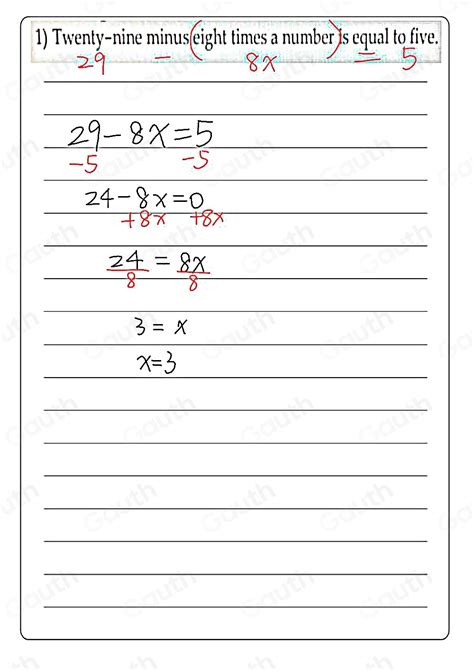 1) Twenty-nine minus(eight times a number)is equal to five.
29 - 8x = 5
29-8x=5
-5 -5
24-8x=0
+8x +8x
24 = 8x
8 8
3 = x
x=3
Gauth